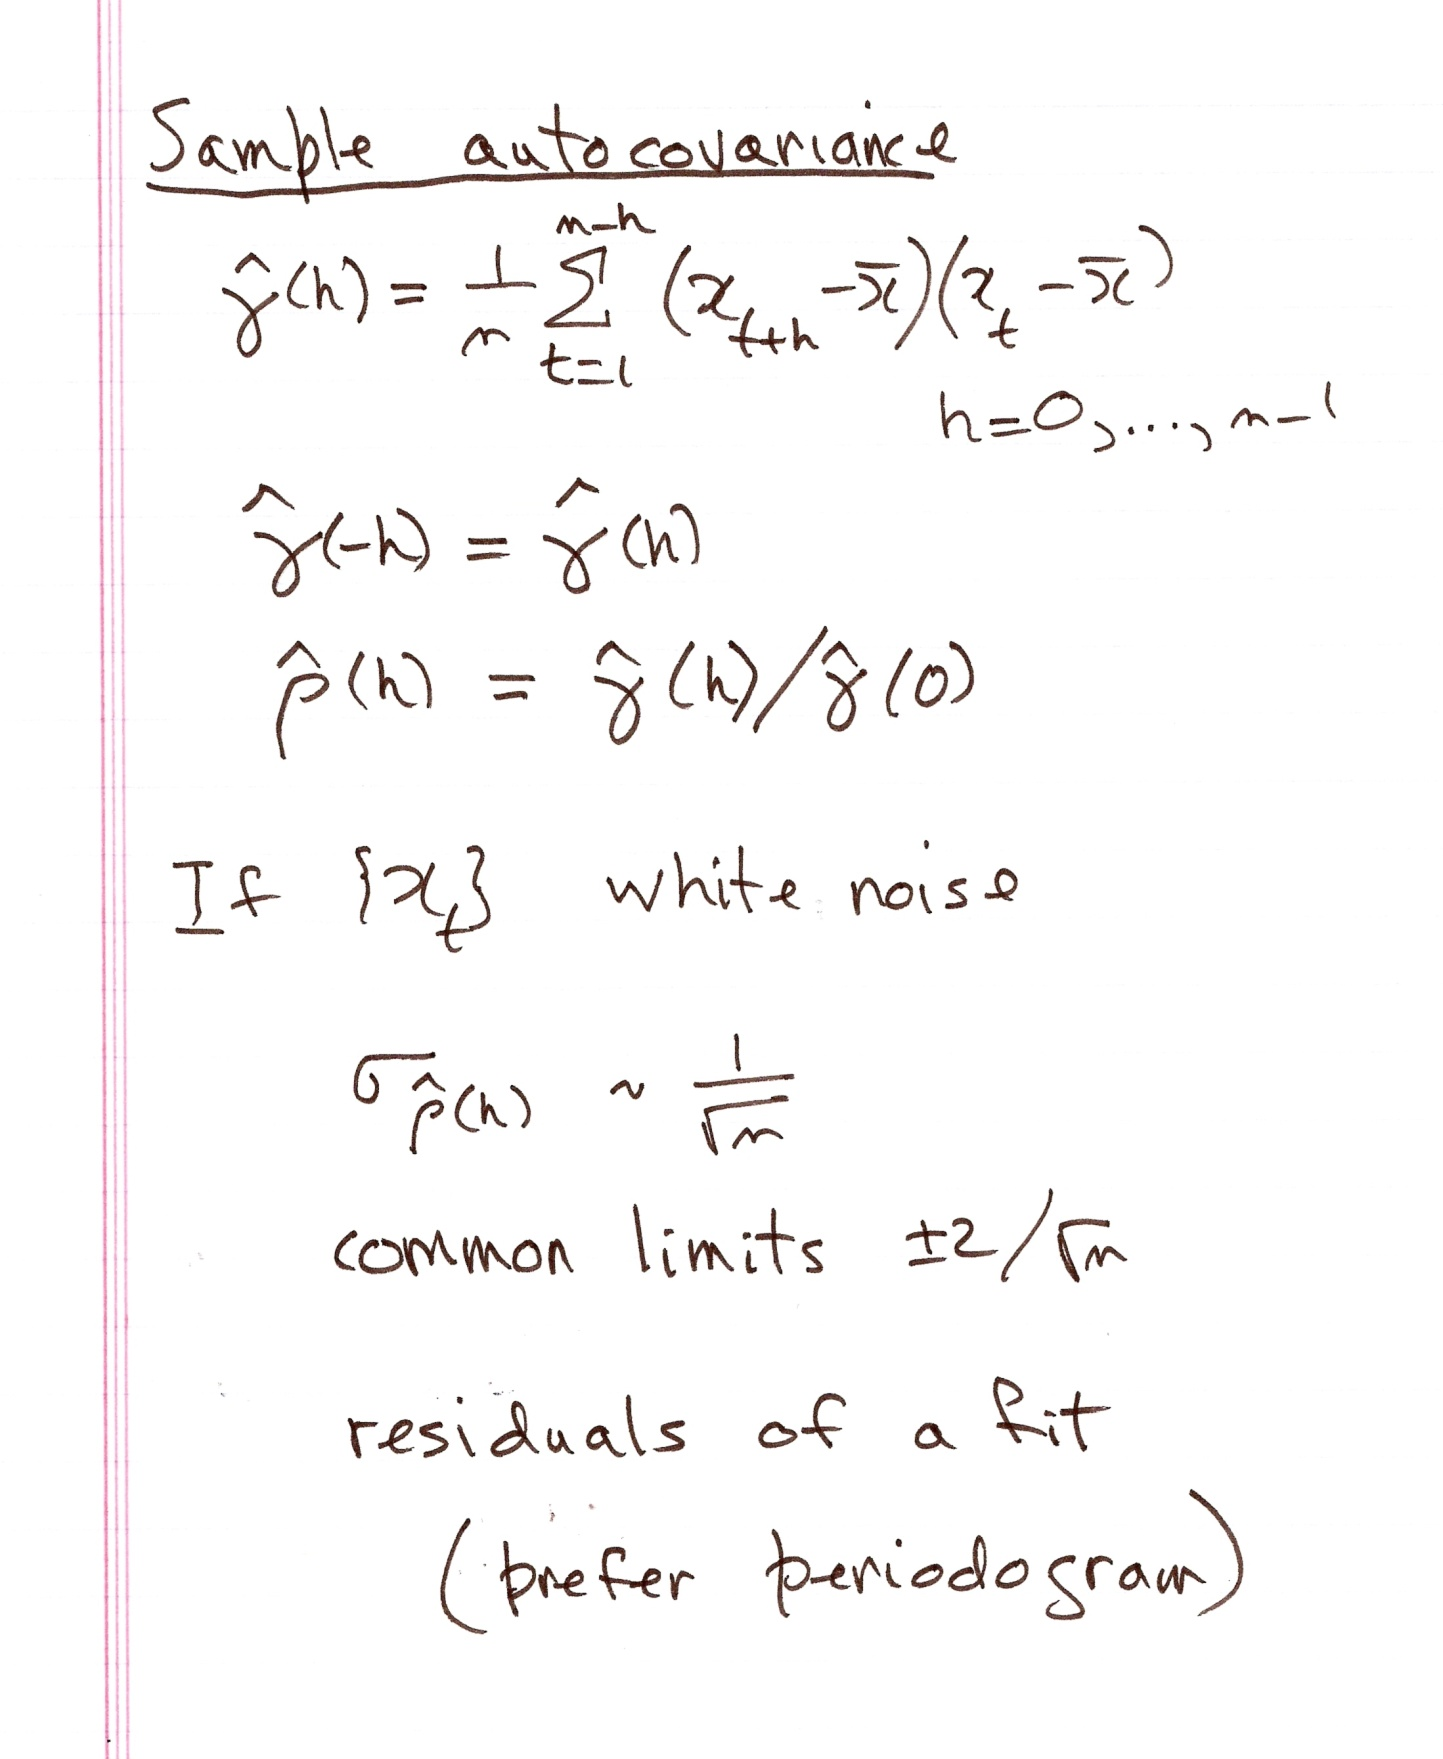 Sample autocovariance
γ̂(h) = 1/n Σ_{t=1}^{n-h} (x_{t+h} - x̄)(x_t - x̄)
h=0,...,n-1
γ̂(-h) = γ̂(h)
ρ̂(h) = γ̂(h)/γ̂(0)
If {x_t} white noise
σ_{ρ̂(h)} ~ 1/√n
common limits ±2/√n
residuals of a fit
(prefer periodogram)